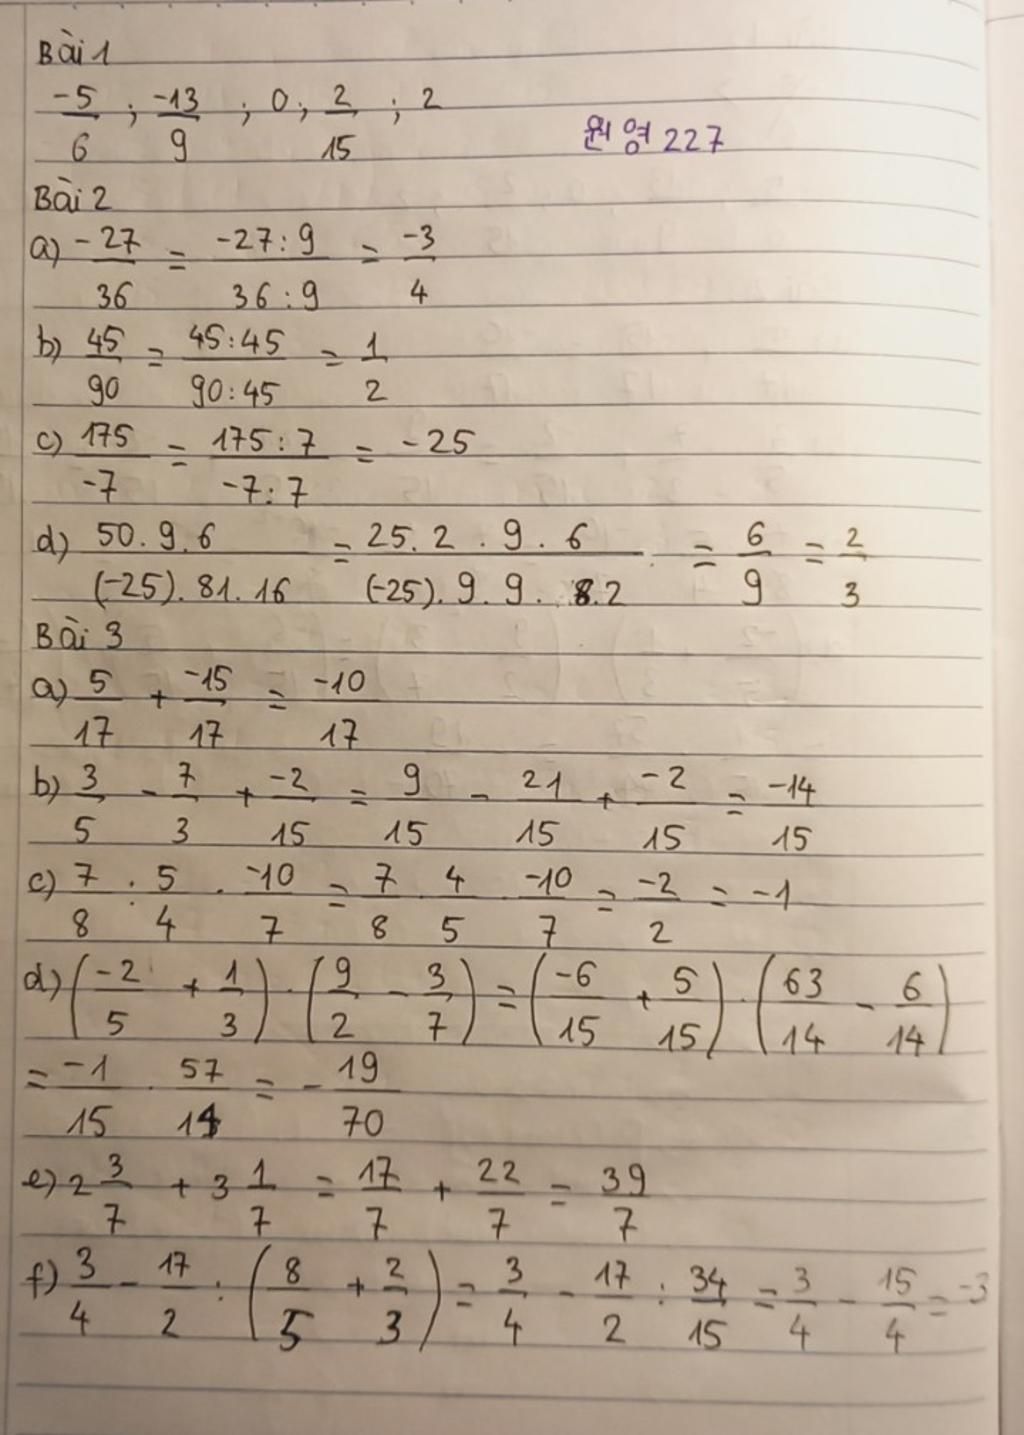 Bài 1
-5/6 ; -13/9 ; 0 ; 2/15 ; 2
원영 227
Bài 2
a) -27/36 = -27:9/36:9 = -3/4
b) 45/90 = 45:45/90:45 = 1/2
c) 175/-7 = 175:7/-7:7 = -25
d) 50.9.6/(-25).81.16 = 25.2.9.6/(-25).9.9.8.2 = 6/9 = 2/3
Bài 3
a) 5/17 + -15/17 = -10/17
b) 3/5 - 7/3 + -2/15 = 9/15 - 21/15 + -2/15 = -14/15
c) 7/8 : 5/4 . -10/7 = 7/8 . 4/5 . -10/7 = -2/2 = -1
d) (-2/5 + 1/3) . (9/2 - 3/7) = (-6/15 + 5/15) . (63/14 - 6/14)
= -1/15 . 57/14 = - 19/70
e) 2 3/7 + 3 1/7 = 17/7 + 22/7 = 39/7
f) 3/4 - 17/2 : (8/5 + 2/3) = 3/4 - 17/2 : 34/15 = 3/4 - 15/4 = -3